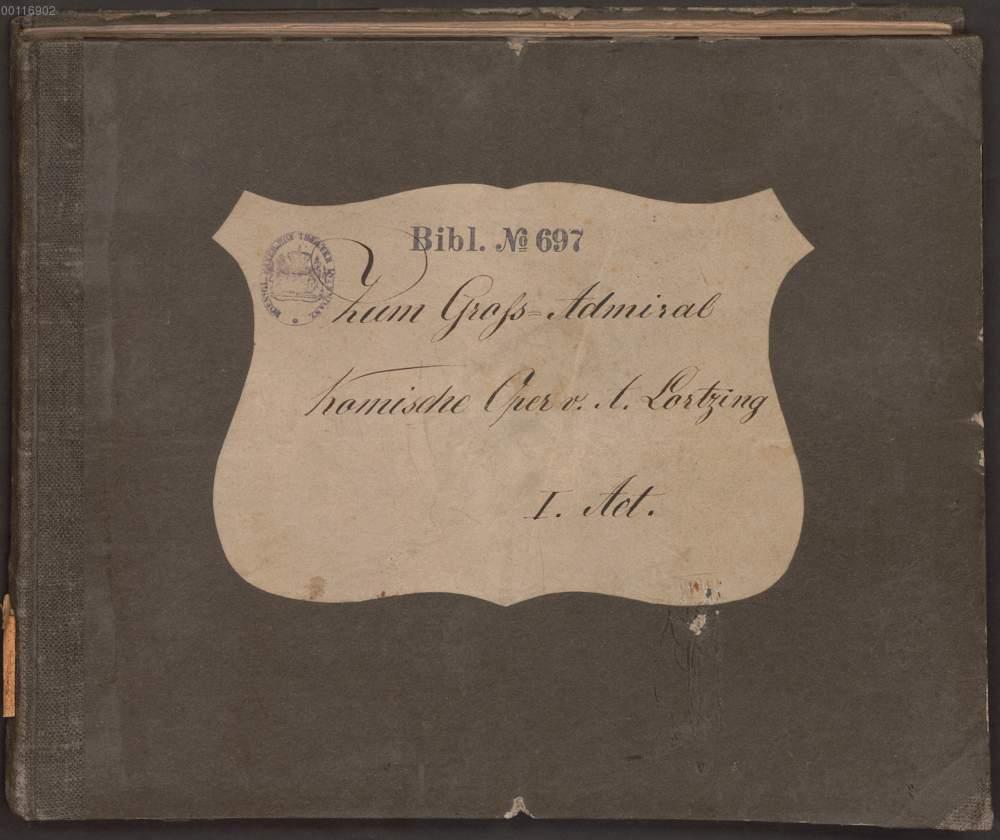 00116902
Bibl. № 697
Zum Groſs-Admiral
Komische Oper v. A. Lortzing
I. Act.